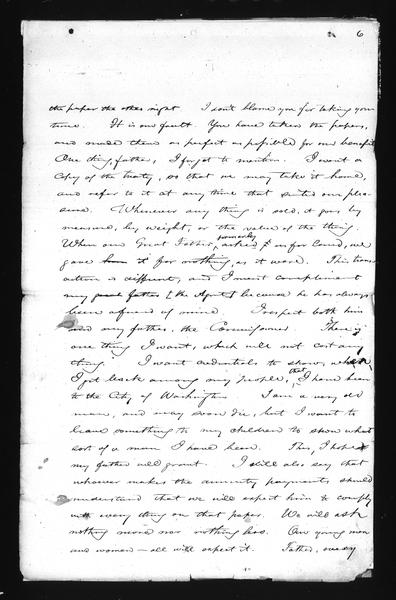 6
the paper the other night I don't blame you for taking your
time. It is our fault. You have taken the papers,
and made them as perfect as possible for our benefit
One thing, father, I forgot to mention. I want a
Copy of the treaty, so that we may take it home,
and refer to it at any time that suited our plea-
sure. Whenever any thing is sold, it goes by
measure, by weight, or the value of the thing.
formerly
When our Great Father, asked us for land, we
gave it for nothing, as it were. This trans
action is different, and I must compliment
my father [the Agent] because he has always
been a friend of mind. I respect both him
and my father, the Commissioner. There is
one thing I want, which will not cost any
thing. I want credentials to show, when
that
I get back among my people, I have been
to the City of Washington. I am a very old
man, and may soon die, but I want to
leave something to my children to show what
sort of a man I have been. This, I hope
my father will grant. I still also say that
whoever makes the annuity payments should
understand that we will expect him to comply
with every thing on that paper. We will ask
nothing more nor nothing less. Our young men
and women—all will expect it. Father, every